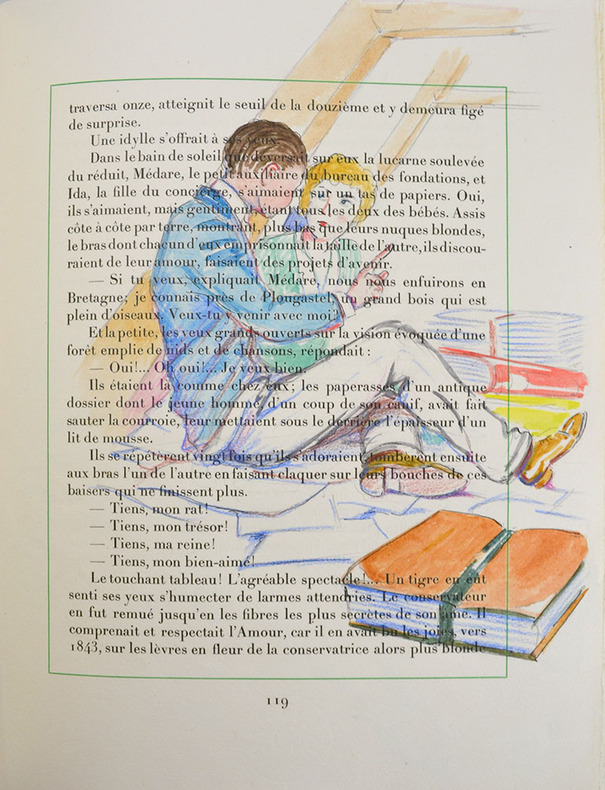 traversa onze, atteignit le seuil de la douzième et y demeura figé
de surprise.
Une idylle s'offrait à ses yeux.
Dans le bain de soleil que déversait sur eux la lucarne soulevée
du réduit, Médare, le petit auxiliaire du bureau des fondations, et
Ida, la fille du concierge, s'aimaient sur un tas de papiers. Oui,
ils s'aimaient, mais gentiment, étant tous les deux des bébés. Assis
côte à côte par terre, montrant, plus bas que leurs nuques blondes,
le bras dont chacun d'eux emprisonnait la taille de l'autre, ils discou-
raient de leur amour, faisaient des projets d'avenir.
— Si tu veux, expliquait Médare, nous nous enfuirons en
Bretagne; je connais près de Plougastel un grand bois qui est
plein d'oiseaux. Veux-tu y venir avec moi?
Et la petite, les yeux grands ouverts sur la vision évoquée d'une
forêt emplie de nids et de chansons, répondait :
— Oui!... Oh oui!... Je veux bien.
Ils étaient là comme chez eux; les paperasses d'un antique
dossier dont le jeune homme, d'un coup de son canif, avait fait
sauter la courroie, leur mettaient sous le derrière l'épaisseur d'un
lit de mousse.
Ils se répétèrent vingt fois qu'ils s'adoraient, tombèrent ensuite
aux bras l'un de l'autre en faisant claquer sur leurs bouches de ces
baisers qui ne finissent plus.
— Tiens, mon rat!
— Tiens, mon trésor!
— Tiens, ma reine!
— Tiens, mon bien-aimé!
Le touchant tableau! L'agréable spectacle!... Un tigre en eût
senti ses yeux s'humecter de larmes attendries. Le conservateur
en fut remué jusqu'en les fibres les plus secrètes de son âme. Il
comprenait et respectait l'Amour, car il en avait bu les joies, vers
1843, sur les lèvres en fleur de la conservatrice alors plus blonde
119